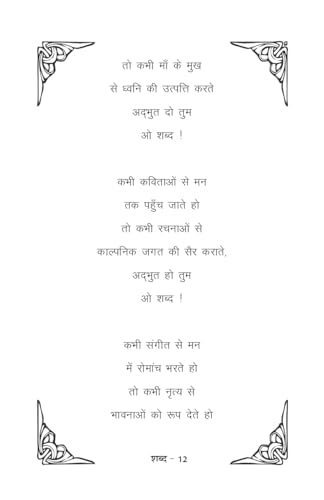 तो कभी माँ के मुख
से ध्वनि की उत्पत्ति करते
अद्भुत दो तुम
ओ शब्द !
कभी कविताओं से मन
तक पहुँच जाते हो
तो कभी रचनाओं से
काल्पनिक जगत की सैर कराते,
अद्भुत हो तुम
ओ शब्द !
कभी संगीत से मन
में रोमांच भरते हो
तो कभी नृत्य से
भावनाओं को रूप देते हो
शब्द - 12